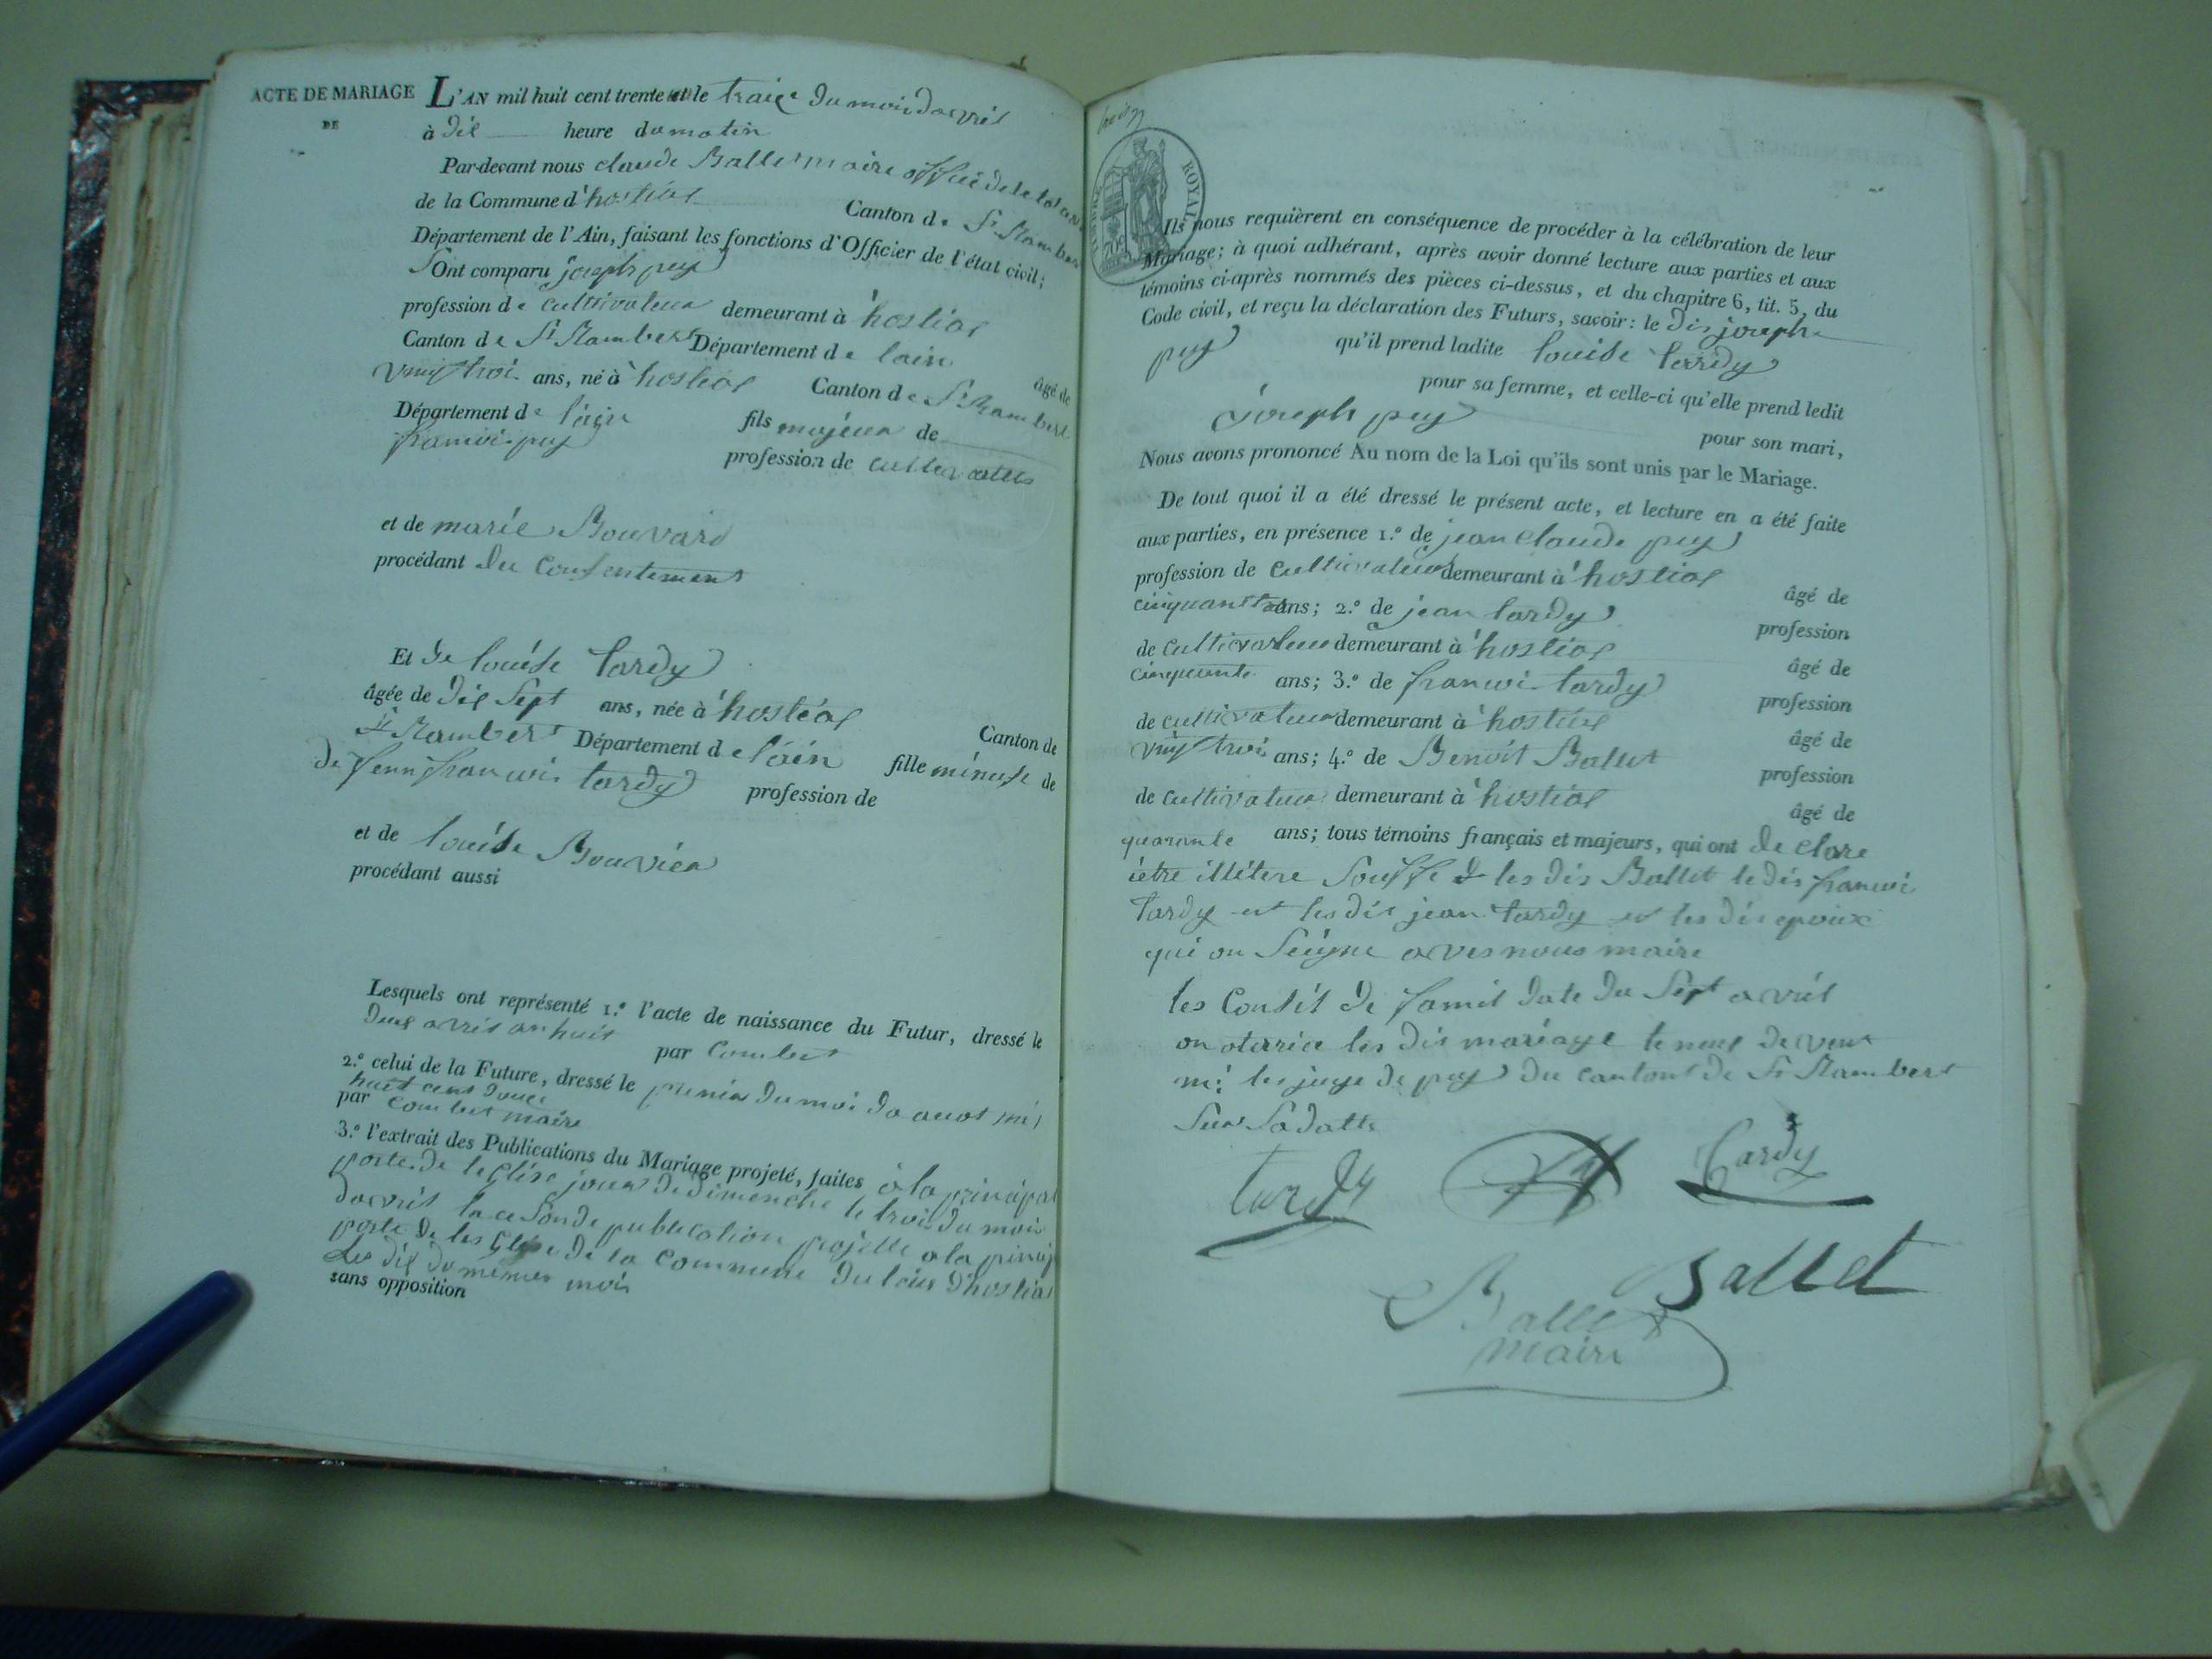 ACTE DE MARIAGE
DE
L'AN mil huit cent trente et le traice du mois davril
à dis heure du matin
Par-devant nous claude Ballet maire
de la Commune d'hostias Canton de St Rambert
Département de l'Ain, faisant les fonctions d'Officier de l'état civil;
Ont comparu joseph puy
profession de cultivateur demeurant à hostias
Canton de St Rambert Département de lain âgé de
vingtroi ans, né à hostias Canton de St Rambert
Département de lain fils majeur de
franwi puy profession de cultivateur
et de marie Bouvard
procédant du Consentement
Et de louise tardy
âgée de dis sept ans, née à hostias Canton de
St Rambert Département de lain fille de
de franwi tardy profession de
et de louise Bouvier
procédant aussi
Lesquels ont représenté 1.° l'acte de naissance du Futur, dressé le
avril an huit par Combet
2.° celui de la Future, dressé le premier du moi daouot mil
huit cent douce
par Combet maire
3.° l'extrait des Publications du Mariage projeté, faites à la principal
porte de leglise jour de dimenche le troi du moi
davril la cesonde publication projette a la princip
porte de les glise de la Commune du lieu d'hostias
les dis du mémes moi
sans opposition
ROYAL
Ils nous requièrent en conséquence de procéder à la célébration de leur
Mariage; à quoi adhérant, après avoir donné lecture aux parties et aux
témoins ci-après nommés des pièces ci-dessus, et du chapitre 6, tit. 5, du
Code civil, et reçu la déclaration des Futurs, savoir: le dis joseph
puy qu'il prend ladite louise tardy
pour sa femme, et celle-ci qu'elle prend ledit
joseph puy pour son mari,
Nous avons prononcé Au nom de la Loi qu'ils sont unis par le Mariage.
De tout quoi il a été dressé le présent acte, et lecture en a été faite
aux parties, en présence 1.° de jean claude puy
profession de cultivateur demeurant à hostias âgé de
ans; 2.° de jean tardy profession
de cultivateur demeurant à hostias âgé de
cinquante ans; 3.° de franwi tardy profession
de cultivateur demeurant à hostias âgé de
vingtroi ans; 4.° de Benoit Ballet profession
de cultivateur demeurant à hostias âgé de
quarante ans; tous témoins français et majeurs, qui ont de clare
ietre illétere les dis Ballet le dis franwi
tardy et les dis jean tardy et les dis epoux
qui on Seigne aves nous maire
les Consil de famil date du Sept avril
on les dis mariage
les juge de pay du canton de St Rambert
Sadatte
tardy
Tardy
Ballet
Ballet
maire